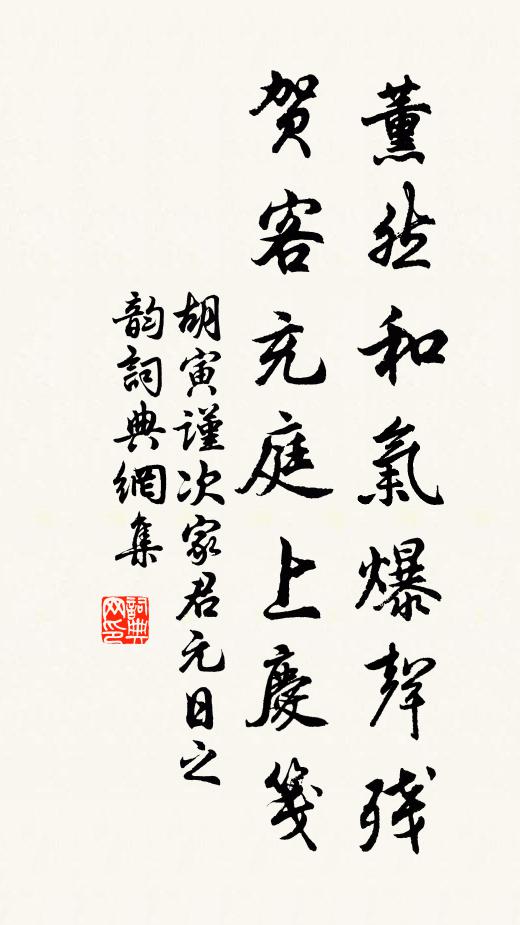 薰然和氣爆聲残
贺客充庭上慶箋
胡寅謹次家君元日之
韵詞典網集
詞典
网印